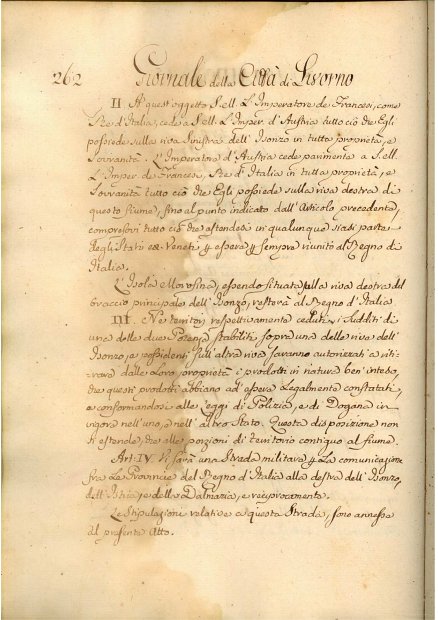 262 Giornale della Città di Livorno
II A quest'oggetto S. ell. L'Imperatore de Francesi, come
Re d'Italia, cede a S. ell. L'Imper. d'Austria tutto ciò che Egli
possiede sulla riva sinistra dell'Isonzo in tutta proprietà, e
sovranità. L'Imperatore d'Austria cede parimente a S. ell.
L'Imper. de Francesi, Re d'Italia in tutta proprietà, e
sovranità tutto ciò che Egli possiede sulla riva destra di
questo fiume, fino al punto indicato dall'Articolo precedente,
compresovi tutto ciò che estendesi in qualunque siasi parte
degli Stati ex-Veneti p essere p sempre riunito al Regno di
Italia.
L'Isola Morosina, essendo situata sulla riva destra del
braccio principale dell'Isonzo, resterà al Regno d'Italia.
III. Ne territorj respettivamente ceduti, i sudditi di
una delle due Potenze stabiliti sopra una delle rive dell'
Isonzo, e possidenti sull'altra riva saranno autorizzati a riti-
rare dalle Loro proprietà i prodotti in natura ben'inteso,
che questi prodotti abbiano ad'essere Legalmente constatati,
e conformandosi alle Leggi di Polizia, e di Dogane in
vigore nell'uno, e nell'altro Stato. Questa disposizione non
si estende, che alle porzioni di territorio contiguo al fiume.
Art: IV. Vi sarà una Strada militare p La comunicazione
fra Le Provincie del Regno d'Italia alla destra dell'Isonzo,
dell'Istria, e della Dalmazia, e reciprocamente.
Le Stipulazioni relative a questa Strada, sono annesse
al presente Atto.